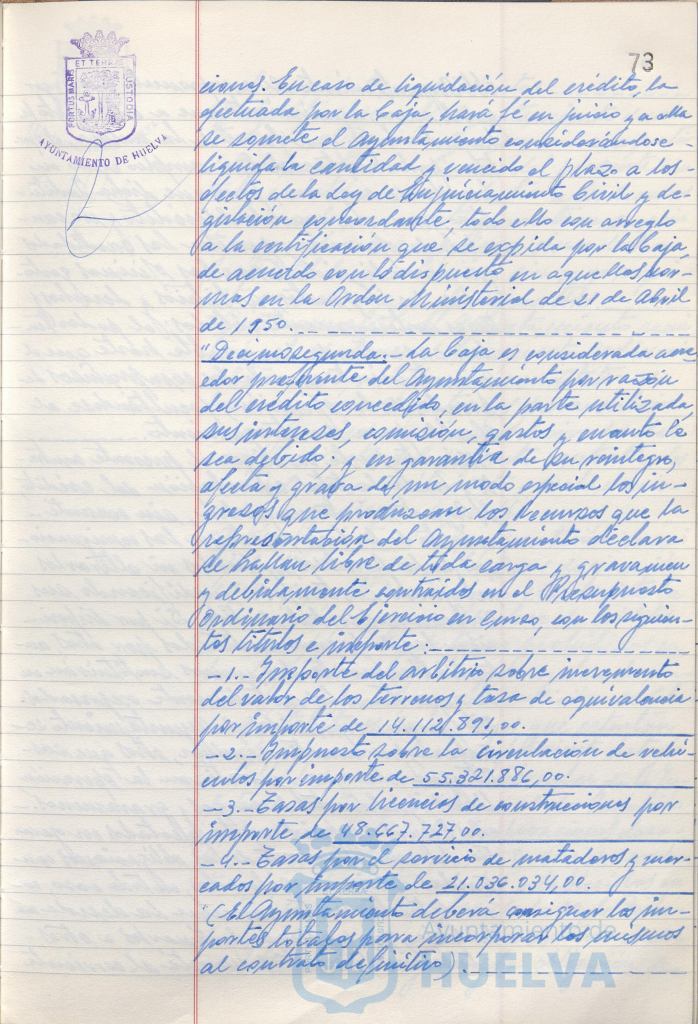 73
PORTUS MARIS
ET TERRÆ
CUSTODIA
AYUNTAMIENTO DE HUELVA
ciones. En caso de liquidación del crédito, la
efectuada por la Caja, hará fé en juicio y a ella
se somete el Ayuntamiento considerándose
liquida la cantidad y vencido el plazo a los
efectos de la Ley de Enjuiciamiento Civil y de-
gislación concordante, todo ello con arreglo
a la certificación que se expida por la Caja,
de acuerdo con lo dispuesto en aquellas nor-
mas en la Orden Ministerial de 21 de Abril
de 1950.
"Decimosegunda.- La Caja es considerada acre-
edor preferente del Ayuntamiento por razón
del crédito concedido, en la parte utilizada
sus intereses, comisión, gastos y cuanto le
sea debido; y en garantía de su reintegro,
afecta y grava de un modo especial los in-
gresos que produzcan los recursos que la
representación del Ayuntamiento declara
se hallan libre de toda carga y gravamen
y debidamente contraidos en el Presupuesto
Ordinario del Ejercicio en Curso, con los siguien-
tes títulos e importe:
-1.- Importe del arbitrio sobre incremento
del valor de los terrenos y tasa de equivalencia
por importe de 14.112.891,00.
-2.- Impuesto sobre la circulación de vehí-
culos por importe de 55.321.886,00.
-3.- Tasas por licencias de construcciones por
importe de 48.667.727,00.
-4.- Tasas por el servicio de mataderos y mer-
cados por importe de 21.036.034,00.
"(El Ayuntamiento deberá consignar los im-
portes totales para incorporar los mismos
al contrato definitivo)
Ayuntamiento de
HUELVA